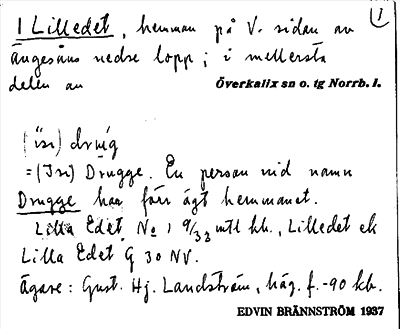 1 Lilledet, hemman på V. sidan av 1
Ängesåns nedre lopp; i mellersta
delen av Överkalix sn o. tg Norrb. l.
(isi) drug
=(Isi) Drugge. En person vid namn
Drugge har förr ägt hemmanet.
Lilla Edet No 1 9/32 mtl kb., Lilledet ek
Lilla Edet G 30 NV.
Ägare: Gust. Hj. Landström, häg. f.-90 kb.
EDVIN BRÄNNSTRÖM 1937